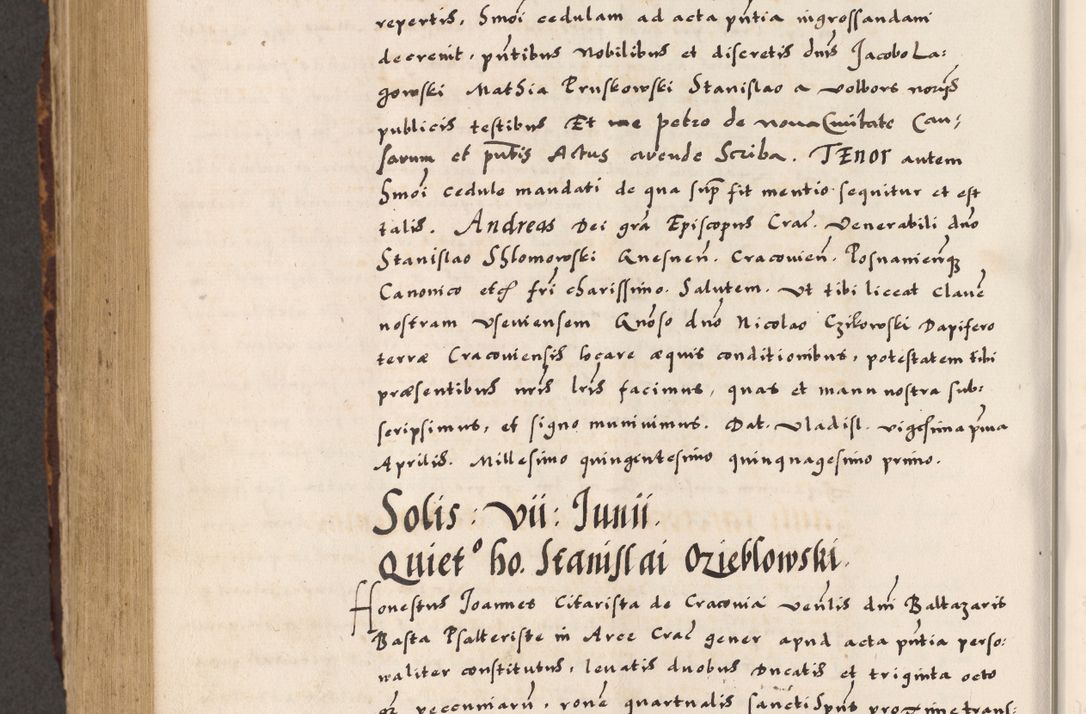 repertis, Smōi cedulam ad acta pn̄tia ingrossandam
decrevit, pn̄tibus Nobilibus et discretis dn̄is Jacobo La:
gowski Mathia Pruskowski Stanislao a Volbors norijs
publicis testibus Et me petro de Nova Civitate Cau,
sarum et pn̄tis Actus Scriba. TEnor autem
Smōi cedule mandati de qua sup̄ fit mentio sequitur et est
talis. Andreas Dei grā Episcopus Crac̄. Venerabili dn̄o
Stanislao Shlomowski Gnesnen̄. Cracovien̄. Posnanien̄q
Canonico etc fr̄i charissimo. Salutem. Ut tibi liceat Clavē
nostram Gn̄oso dn̄o Nicolao Czikowski Dapifero
terræ Cracoviensis locare æquis conditionibus, potestatem tibi
præsentibus nr̄is lr̄is facimus, quas et manu nostra sub:
scripsimus, et signo munivimus. Dat. Vladisl. vigesima pma
Aprilis. Millesimo quingentesimo quinquagesimo primo.
Solis: vii: Junii.
Quietº ho. Stanislai Ozieblowski.
Honestus Joannes Citarista de Cracovia ven̄lis dn̄i Baltazaris
Basta Psalteriste in Arce Crac̄ gener apud acta pn̄tia perso:
naliter constitutus, levatis duobus Ducatis et triginta octo
gr̄ pecuniarū, rōne quartualis sancti Spūs